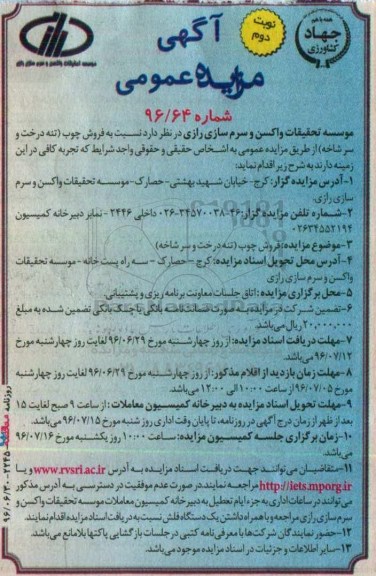 نوبت دوم
آگهی
مزایده عمومی
جهاد کشاورزی
موسسه تحقیقات واکسن و سرم سازی رازی
شماره ۹۶/۶۴
موسسه تحقیقات واکسن و سرم سازی رازی در نظر دارد نسبت به فروش چوب (تنه درخت و
سر شاخه) از طریق مزایده عمومی به اشخاص حقیقی و حقوقی واجد شرایط که تجربه کافی در این
زمینه دارند به شرح زیر اقدام نماید:
۱-آدرس مزایده گزار: کرج- خیابان شهید بهشتی- حصارک-موسسه تحقیقات واکسن و سرم
سازی رازی.
۲-شماره تلفن مزایده گزار: ۴۶-۰۲۶-۳۴۵۷۰۰۳۸ داخلی ۲۴۴۶ - نمابر دبیرخانه کمیسیون
۰۲۶۳۴۵۵۲۱۹۴
۳-موضوع مزایده: فروش چوب (تنه درخت و سر شاخه)
۴-آدرس محل تحویل اسناد مزایده: کرج - حصارک - سه راه پست خانه - موسسه تحقیقات
واکسن و سرم سازی رازی
۵-محل برگزاری مزایده: اتاق جلسات معاونت برنامه ریزی و پشتیبانی.
۶-تضمین شرکت در مزایده به صورت ضمانت نامه بانکی یا چک بانکی تضمین شده به مبلغ
۲۰,۰۰۰,۰۰۰ ریال می باشد.
۷-مهلت دریافت اسناد مزایده: از روز چهارشنبه مورخ ۹۶/۰۶/۲۹ لغایت روز چهارشنبه مورخ
۹۶/۰۷/۱۲ می باشد.
۸-مهلت زمان بازدید از اقلام مذکور: از روز چهارشنبه مورخ ۹۶/۰۶/۲۹ لغایت روز چهارشنبه
مورخ ۹۶/۰۷/۰۵ از ساعت ۱۰:۰۰ الی ۱۲:۰۰ می باشد.
۹-مهلت تحویل اسناد مزایده به دبیرخانه کمیسیون معاملات: از ساعت ۹ صبح لغایت ۱۵
بعد از ظهر از زمان درج آگهی در روزنامه، تا پایان وقت اداری روز شنبه مورخ ۹۶/۰۷/۱۵ می باشد.
۱۰-زمان برگزاری جلسه کمیسیون مزایده: ساعت ۱۰:۰۰ روز یکشنبه مورخ ۹۶/۰۷/۱۶
می باشد.
۱۱-متقاضیان می توانند جهت دریافت اسناد مزایده به آدرس www.rvsri.ac.ir و یا
http://iets.mporg.ir مراجعه نمایند. در صورت عدم موفقیت در دسترسی به آدرس مذکور
می توانند در ساعات اداری به جزء ایام تعطیل به دبیرخانه کمیسیون معاملات موسسه تحقیقات واکسن و
سرم سازی رازی مراجعه و با همراه داشتن یک دستگاه فلش نسبت به دریافت اسناد مزایده اقدام نمایند.
۱۲-حضور نمایندگان شرکت ها با معرفی نامه کتبی در جلسات بازگشایی پاکتها بلامانع می باشد.
۱۳-سایر اطلاعات و جزئیات در اسناد مزایده موجود می باشد.
روزنامه ۲۲۴۵ - ۹۶/۰۶/۳۰